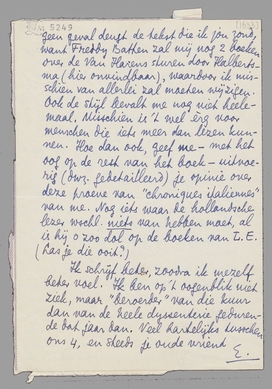 5249
geen geval deugt de tekst die ik jou zond,
want Freddy Batten zal mij nog 2 boeken
over de Van Harens sturen door Halberts-
ma (hier onvindbaar), waardoor ik mis-
schien van allerlei zal moeten wijzigen.
Ook de stijl bevalt me nog niet heele-
maal. Misschien is 't wel erg voor
menschen die iets meer dan lezen kun-
nen. Hoe dan ook, geef me — met het
oog op de rest van het boek — uitvoe-
rig (bwz. gedetailleerd) je opinie over
deze proeve van "chroniques italiennes"
van me. Nog iets waar de hollandsche
lezer wschl. niets van hebben moet, al
is hij o zoo dol op de boeken van I.E.
(Las je die ooit?)
Ik schrijf beter, zoodra ik mezelf
beter voel. Ik ben op 't oogenblik niet
ziek, maar "beroerder" van die kuur
dan van de heele dysenterie geduren-
de dat jaar dan. Veel hartelijks tusschen
ons 4, en steeds je oude vriend
E.